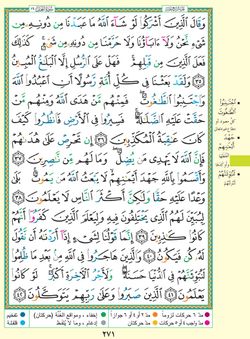 وَقَالَ الَّذِينَ أَشْرَكُوا لَوْ شَاءَ اللَّهُ مَا عَبَدْنَا مِنْ دُونِهِ مِنْ
شَيْءٍ نَحْنُ وَلَا آبَاؤُنَا وَلَا حَرَّمْنَا مِنْ دُونِهِ مِنْ شَيْءٍ كَذَٰلِكَ
فَعَلَ الَّذِينَ مِنْ قَبْلِهِمْ فَهَلْ عَلَى الرُّسُلِ إِلَّا الْبَلَاغُ الْمُبِينُ
٣٥ وَلَقَدْ بَعَثْنَا فِي كُلِّ أُمَّةٍ رَسُولًا أَنِ اعْبُدُوا اللَّهَ
وَاجْتَنِبُوا الطَّاغُوتَ فَمِنْهُمْ مَنْ هَدَى اللَّهُ وَمِنْهُمْ مَنْ
حَقَّتْ عَلَيْهِ الضَّلَالَةُ فَسِيرُوا فِي الْأَرْضِ فَانْظُرُوا كَيْفَ
كَانَ عَاقِبَةُ الْمُكَذِّبِينَ ٣٦ إِنْ تَحْرِصْ عَلَىٰ هُدَاهُمْ
فَإِنَّ اللَّهَ لَا يَهْدِي مَنْ يُضِلُّ وَمَا لَهُمْ مِنْ نَاصِرِينَ ٣٧
وَأَقْسَمُوا بِاللَّهِ جَهْدَ أَيْمَانِهِمْ لَا يَبْعَثُ اللَّهُ مَنْ يَمُوتُ بَلَىٰ
وَعْدًا عَلَيْهِ حَقًّا وَلَٰكِنَّ أَكْثَرَ النَّاسِ لَا يَعْلَمُونَ ٣٨
لِيُبَيِّنَ لَهُمُ الَّذِي يَخْتَلِفُونَ فِيهِ وَلِيَعْلَمَ الَّذِينَ كَفَرُوا أَنَّهُمْ
كَانُوا كَاذِبِينَ ٣٩ إِنَّمَا قَوْلُنَا لِشَيْءٍ إِذَا أَرَدْنَاهُ أَنْ نَقُولَ
لَهُ كُنْ فَيَكُونُ ٤٠ وَالَّذِينَ هَاجَرُوا فِي اللَّهِ مِنْ بَعْدِ مَا ظُلِمُوا
لَنُبَوِّئَنَّهُمْ فِي الدُّنْيَا حَسَنَةً وَلَأَجْرُ الْآخِرَةِ أَكْبَرُ لَوْ كَانُوا
يَعْلَمُونَ ٤١ الَّذِينَ صَبَرُوا وَعَلَىٰ رَبِّهِمْ يَتَوَكَّلُونَ ٤٢
٢٧١